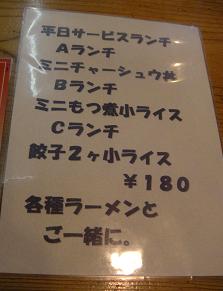 平日サービスランチ
Aランチ
ミニチャーシュウ丼
Bランチ
ミニもつ煮小ライス
Cランチ
餃子2ヶ小ライス
¥180
各種ラーメンと
ご一緒に。